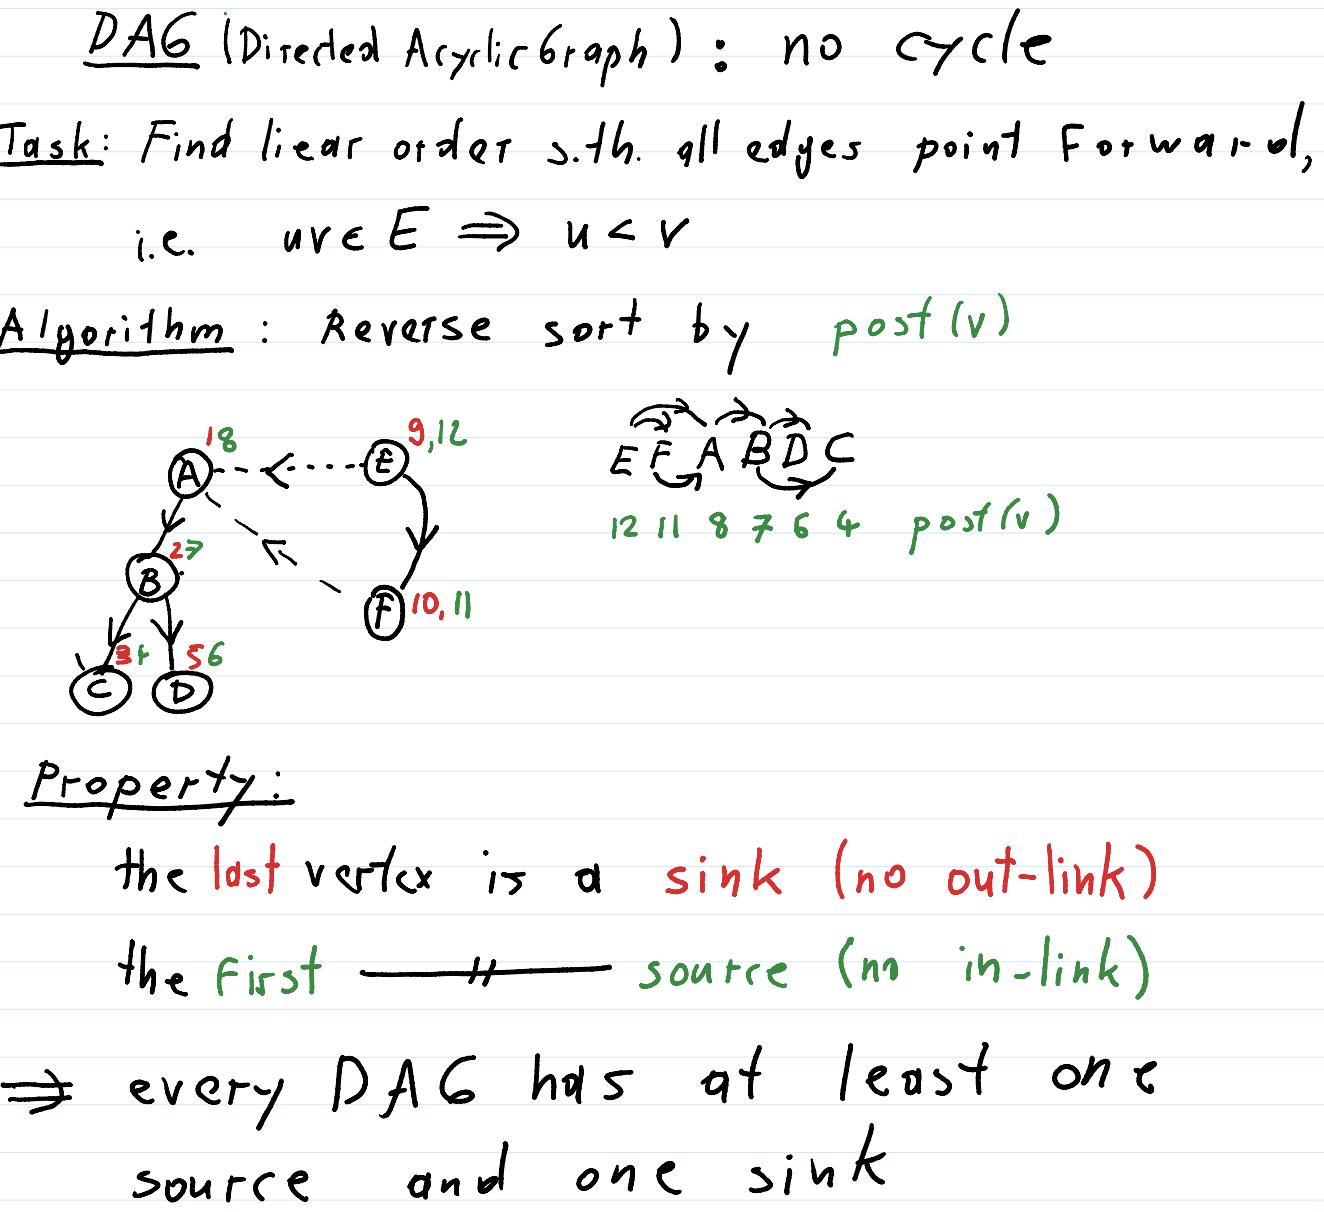 DAG (Directed Acyclic Graph) : no cycle
Task: Find liear order s.th. all edges point Forward,
i.e. uv ∈ E ⇒ u < v
Algorithm : Reverse sort by post(v)
1 8
9,12
A
E
E F A B D C
12 11 8 7 6 4 post(v)
2 7
B
F
10, 11
3 4
5 6
C
D
Property:
the last vertex is a sink (no out-link)
the First —//— source (no in-link)
⇒ every DAG has at least one
source and one sink